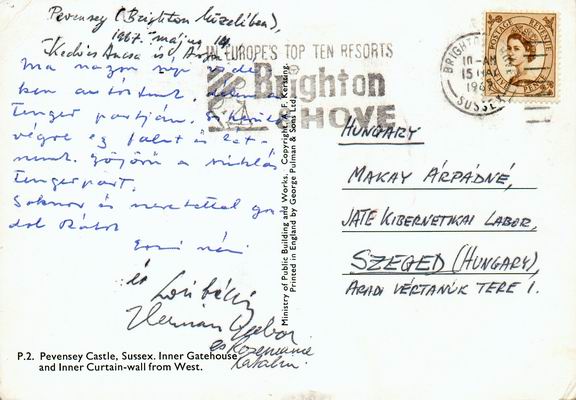 Pevensey (Brighton közelében),
1967. május 14.
Kedves Ancsa és Árpád
Ma nagyon szép
ben autóztunk, délen a
tenger partján. Sikerült
végre ez falut is
nünk. Gyönyörű a sziklás
tengerpart.
Sokszor és szeretettel gon
dol Rátok
Erzsi néni
és Lori bácsi
Herman Gabor
és Rosemarie
Katalin
IN EUROPE'S TOP TEN RESORTS
Brighton
& HOVE
BRIGHTON
10-AM
15 MAY
SUSSEX
POSTAGE REVENUE
HUNGARY
MAKAY ÁRPÁDNÉ,
JATE KIBERNETIKAI LABOR,
SZEGED (HUNGARY),
ARADI VÉRTANÚK TERE 1.
Ministry of Public Building and Works. Copyright A. F. Kersting.
Printed in England by George Pulman & Sons Ltd.
P.2. Pevensey Castle, Sussex. Inner Gatehouse
and Inner Curtain-wall from West.